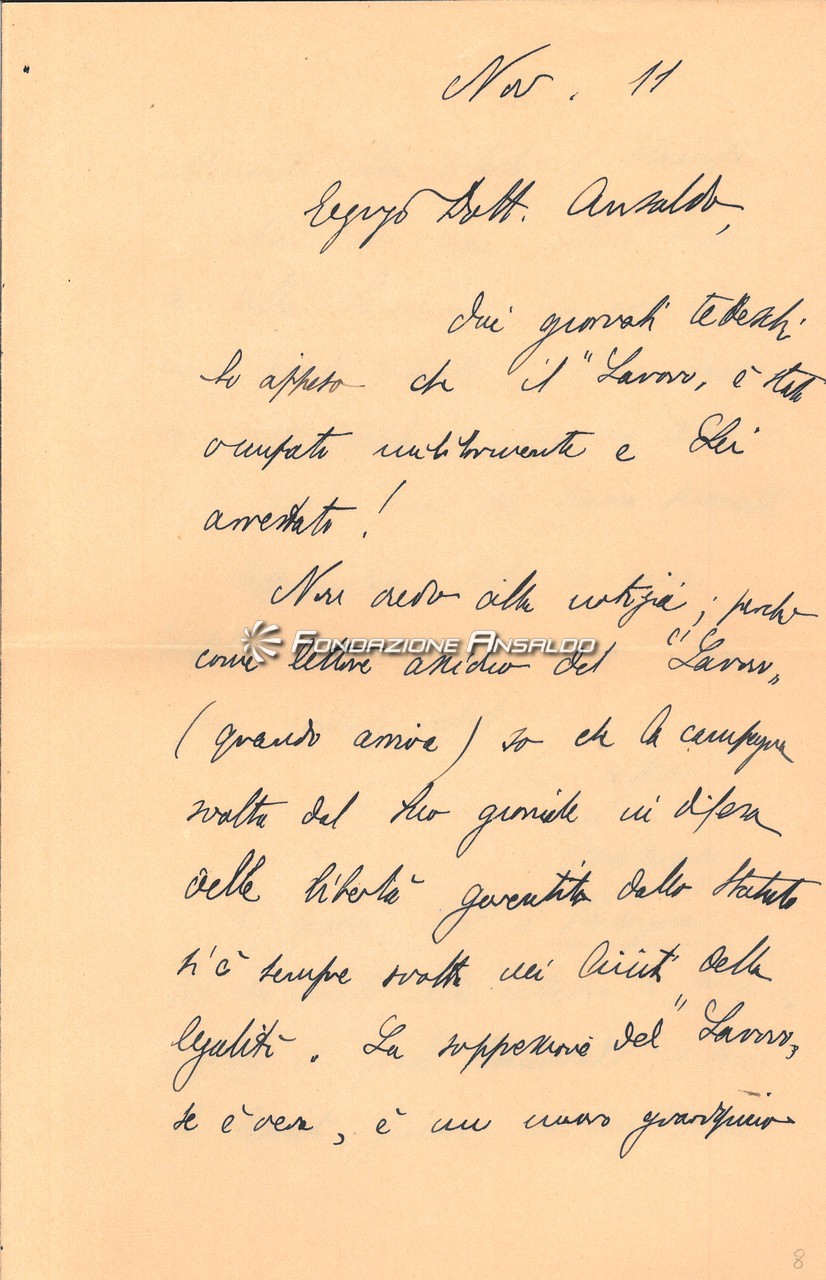 Nov. 11
Egregio Dott. Ansaldo,
dai giornali tedeschi
ho appreso che il "Lavoro„ è stato
occupato militarmente e Lei
arrestato!
Non credo alla notizia; perché
FONDAZIONE ANSALDO
come lettore assiduo del "Lavoro„
(quando arriva) so che la campagna
svolta dal Suo giornale in difesa
delle libertà garantite dallo Statuto
si è sempre svolta nei limiti della
legalità. La soppressione del "Lavoro„
se è vera, è un nuovo
8